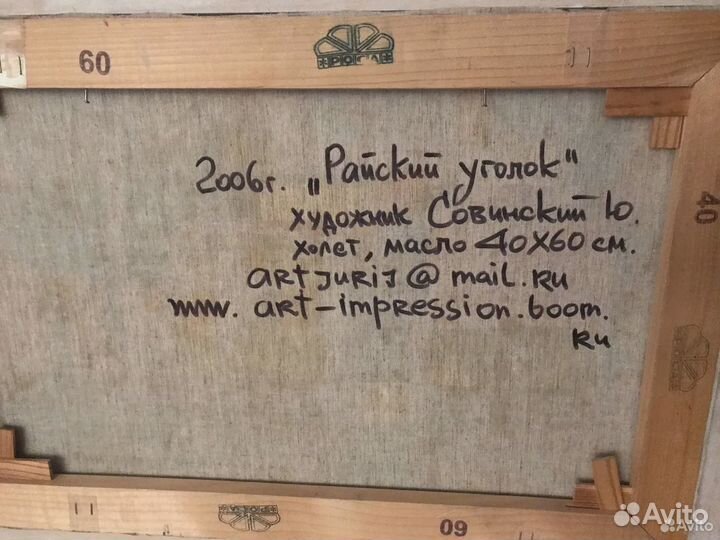 60
РОСА
2006г. „Райский уголок"
художник Совинский Ю.
холст, масло 40х60 см.
artjurij@mail.ru
www.art-impression.boom.
ru
40
РОСА
60
Avito
Avito